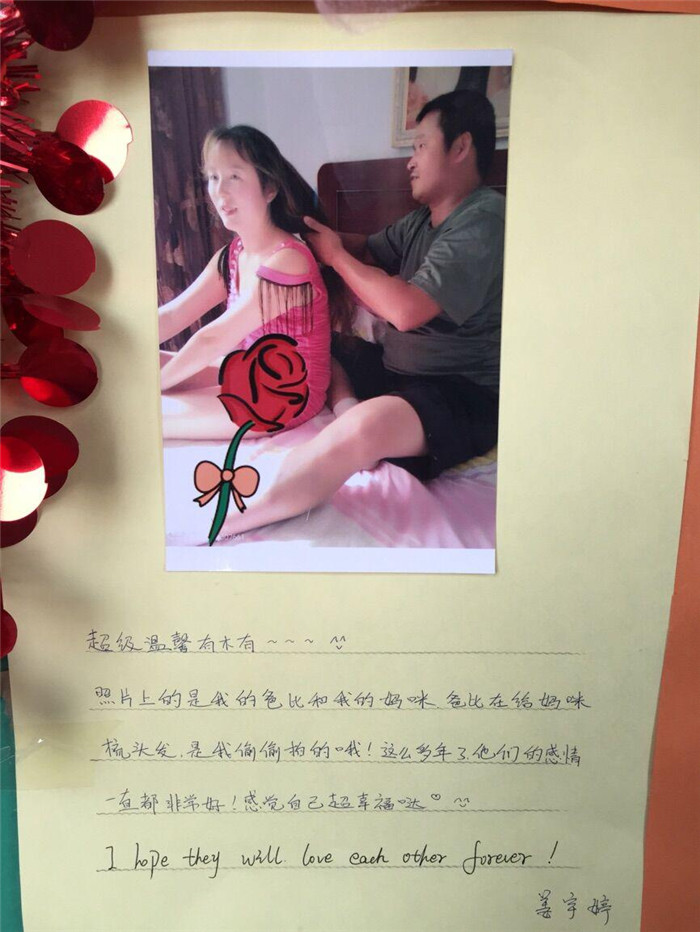 超级温馨有木有~~~ ^^
照片上的是我的爸比和我的妈咪.爸比在给妈咪
梳头发.是我偷偷拍的哦!这么多年了.他们的感情
一直都非常好!感觉自己超幸福哒♡ ^^
I hope they will love each other forever!
姜宇婷